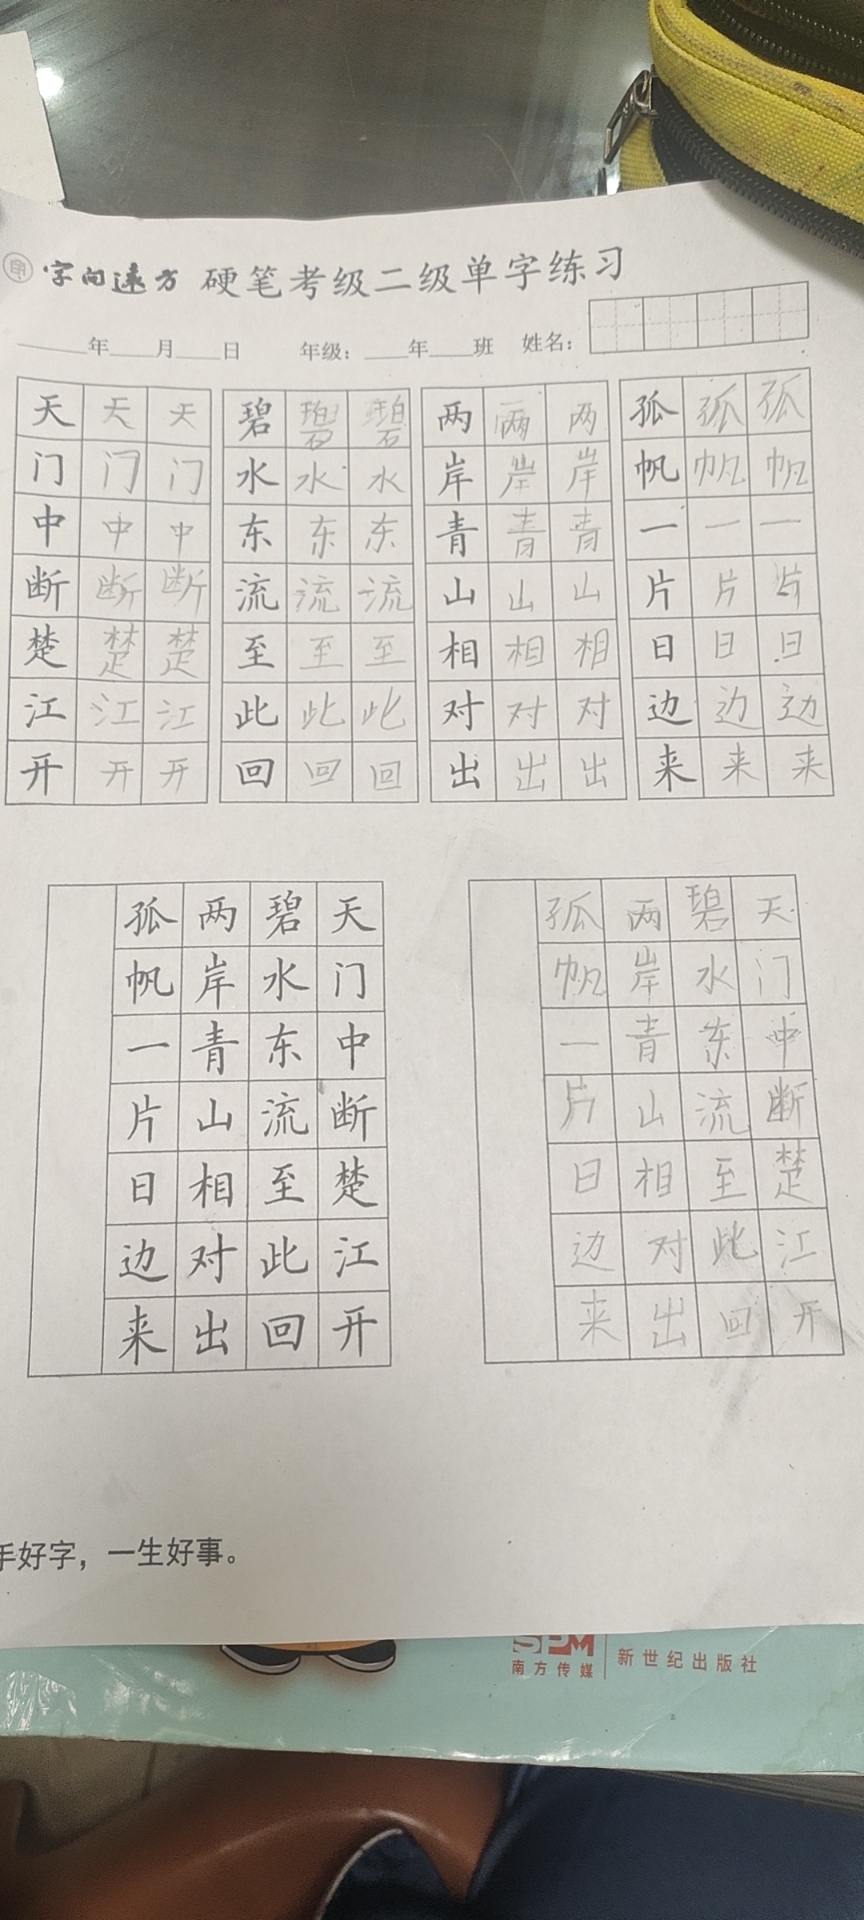 字向远方 硬笔考级二级单字练习
年 月 日 年级： 年 班 姓名：
天 天 天 碧 碧 碧 两 两 两 孤 孤 孤
门 门 门 水 水 水 岸 岸 岸 帆 帆 帆
中 中 中 东 东 东 青 青 青 一 一 一
断 断 断 流 流 流 山 山 山 片 片 片
楚 楚 楚 至 至 至 相 相 相 日 日 日
江 江 江 此 此 此 对 对 对 边 边 边
开 开 开 回 回 回 出 出 出 来 来 来
天门中断楚江开
碧水东流至此回
两岸青山相对出
孤帆一片日边来
天门中断楚江开
碧水东流至此回
两岸青山相对出
孤帆一片日边来
手好字，一生好事。
SPM
南方传媒
新世纪出版社